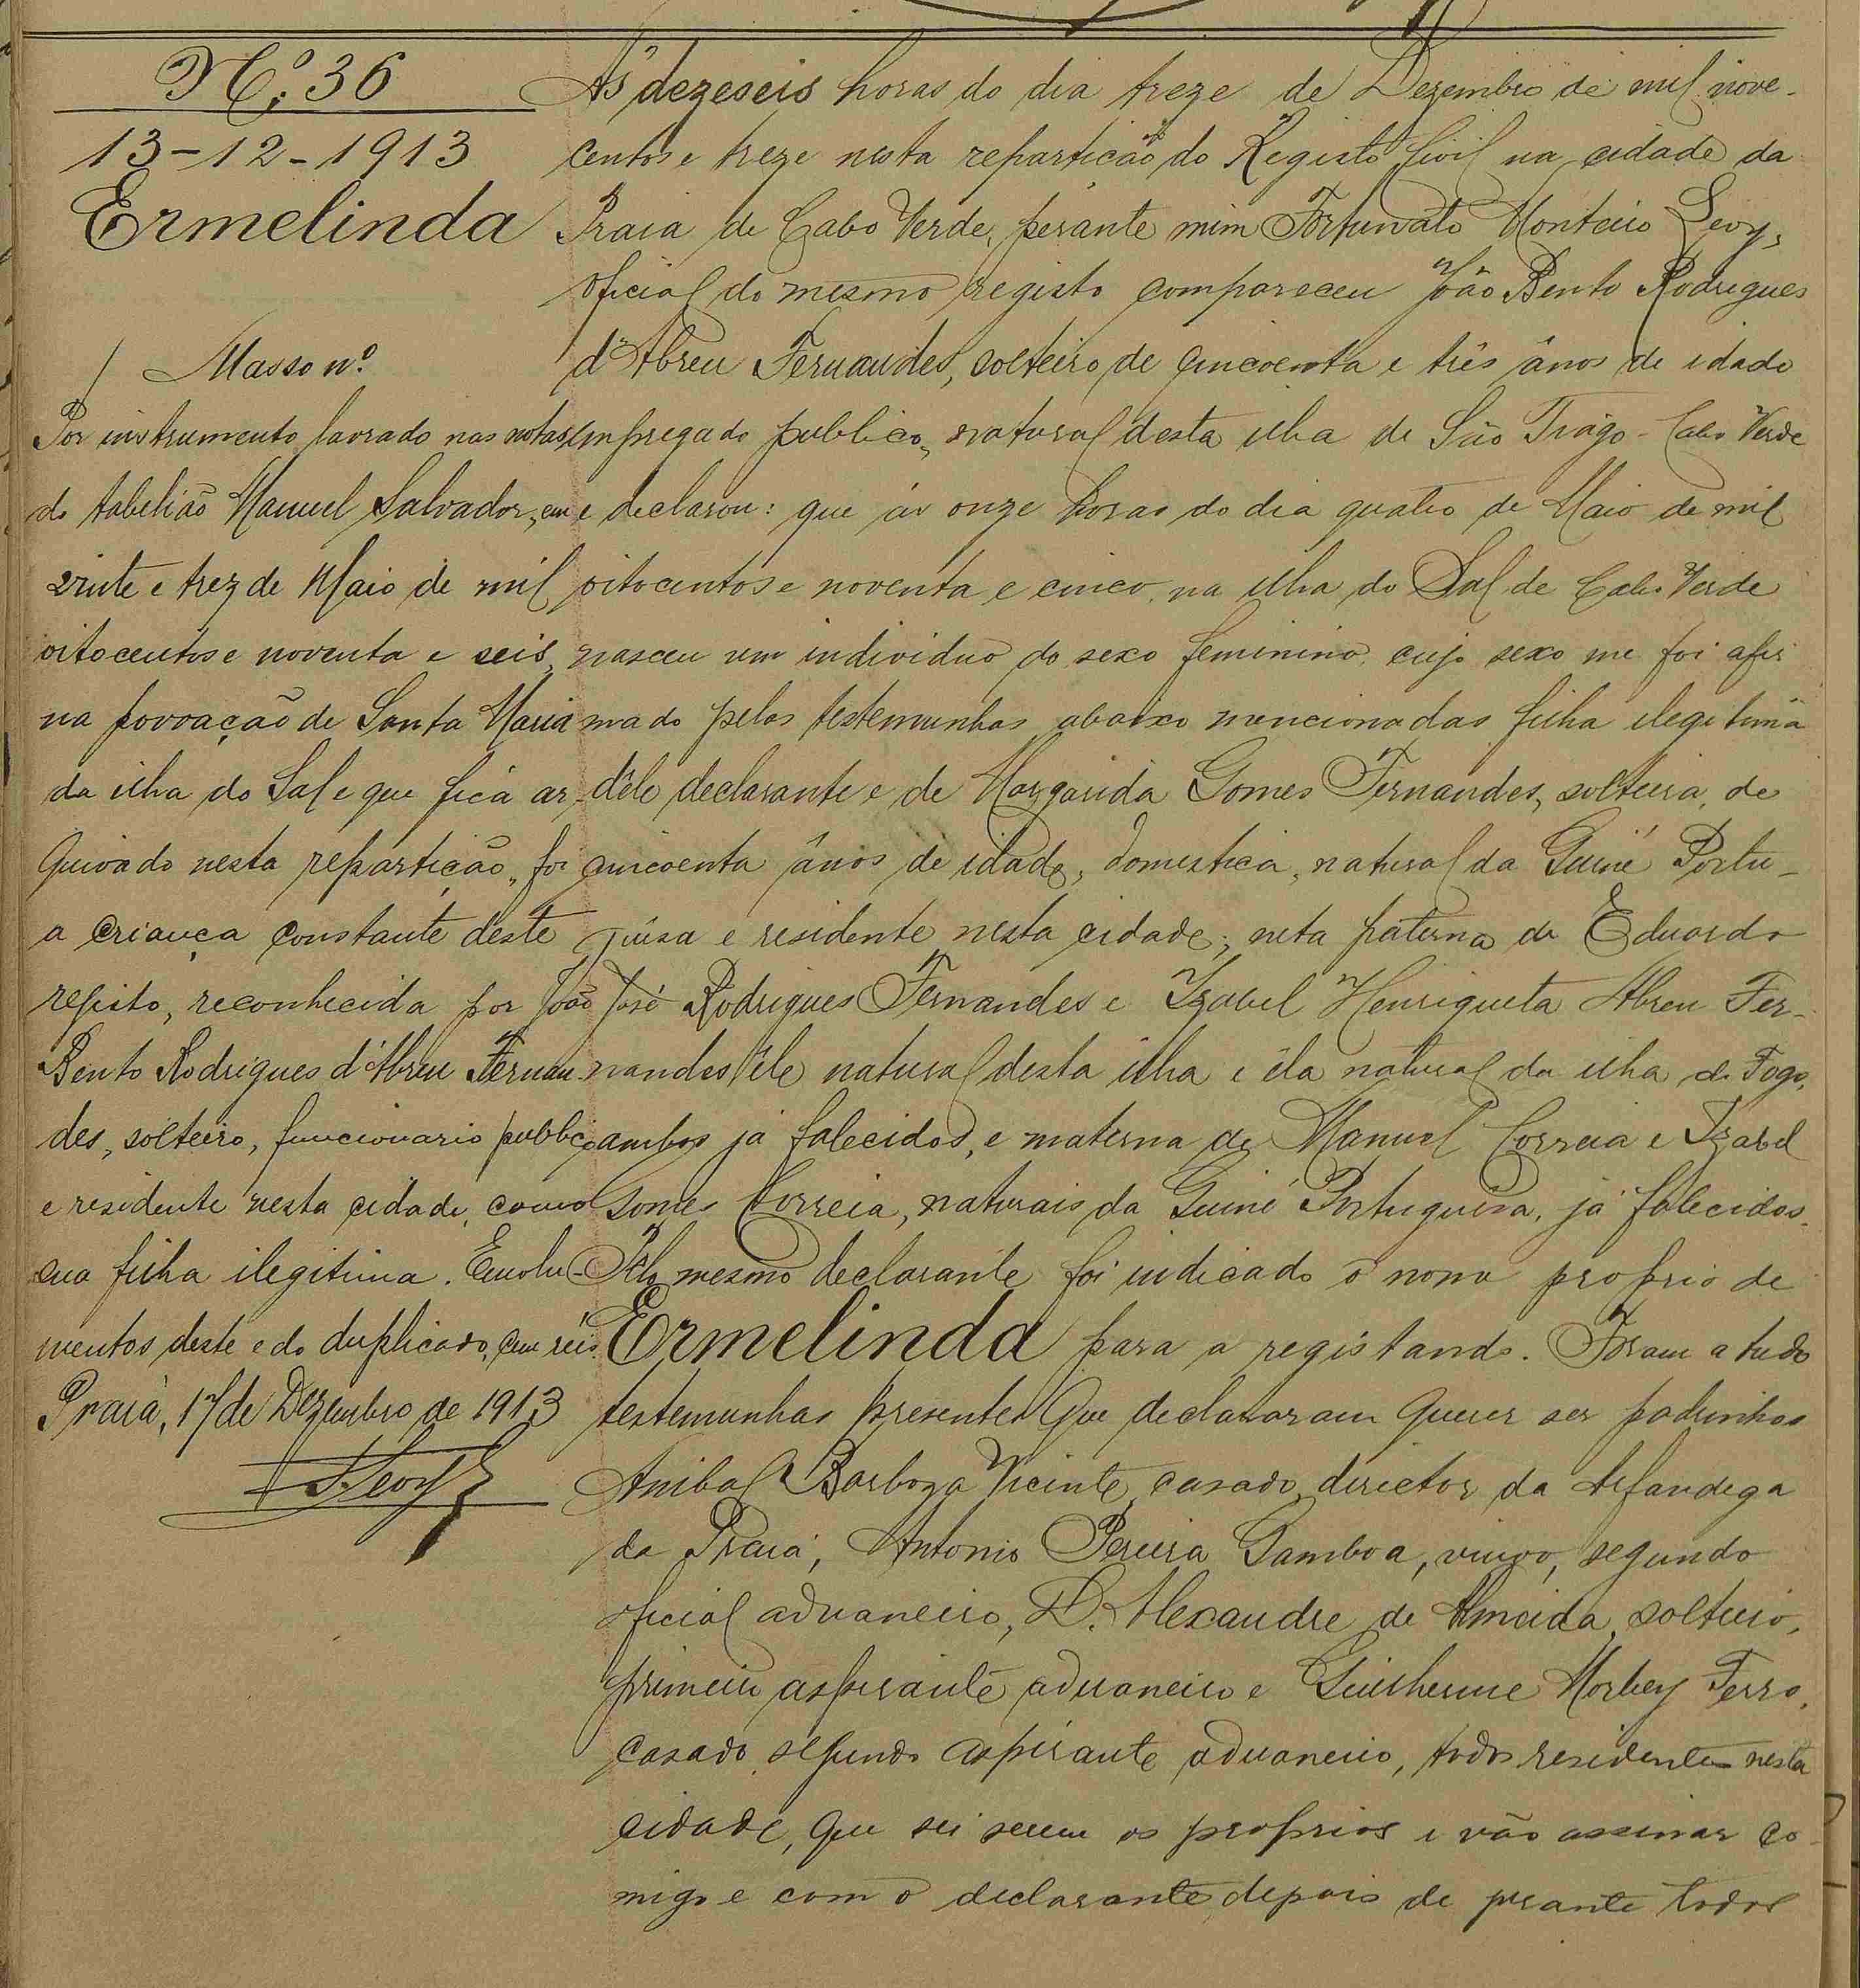 Nº. 36
13-12-1913
Ermelinda
Masso nº
Por instrumento lavrado nas notas
do tabelião Manuel Salvador, em
vinte e trez de Maio de mil
oitocentos e noventa e seis,
na povoação de Santa Maria
da ilha do Sal e que fica ar-
quivado nesta repartição, foi
a criança constante deste
registo, reconhecida por João
Bento Rodrigues d'Abreu Fernan-
des, solteiro, funcionario publico
e residente nesta cidade, como
sua filha ilegitima. Emolu-
mentos deste e do duplicado, cem réis
Praia, 17 de Dezembro de 1913
F. Levy
Ás dezeseis horas do dia treze de Dezembro de mil nove-
centos e treze nesta repartição do Registo Civil na cidade da
Praia de Cabo Verde, perante mim Fortunato Monteiro Levy,
oficial do mesmo registo compareceu João Bento Rodrigues
d'Abreu Fernandes, solteiro de cincoenta e três ânos de idade
empregado publico, natural desta ilha de São Tiago - Cabo Verde
e declarou: que ás onze horas do dia quatro de Maio de mil
oitocentos e noventa e cinco, na ilha do Sal de Cabo Verde
nasceu um individuo do sexo feminino, cujo sexo me foi afir
mado pelas testemunhas abaixo mencionadas filha ilegitima
dêle declarante e de Margarida Gomes Fernandes, solteira, de
cincoenta ânos de idade, domestica, natural da Guiné Portu-
guêsa e residente nesta cidade; neta paterna de Eduardo
José Rodrigues Fernandes e Izabel Henriqueta Abreu Fer-
nandes êle natural desta ilha e éla natural da ilha do Fogo,
ambos já falecidos, e materna de Manuel Correia e Izabel
Gomes Correia, naturais da Guiné Portuguêsa, já falecidos.
Pelo mesmo declarante foi indicado o nome proprio de
Ermelinda para a registando. Foram a tudo
testemunhas presentes que declararam querer ser padrinhos
Anibal Barboza Vicente, casado, director da Alfandega
da Praia, Antonio Pereira Gamboa, viuvo, segundo
oficial aduaneiro, D. Alexandre de Almeida, solteiro,
primeiro aspirante aduaneiro e Guilherme Morbey Ferro,
casado, segundo aspirante aduaneiro, todos residentes nesta
cidade, que sei serem os proprios e vão assinar co-
migo e com o declarante, depois de perante todos